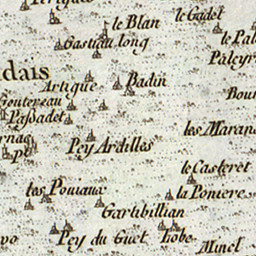 le Blan
le Gadet
Gastau long
le Pal
Paleyr
dais
Badin
Artigue
Goutereau
Bour
Passadet
les Marans
Pey Ardilles
le Casteret
les Pouiaux
la Poniere
Gartibillian
Pey du Guet
hobe
Minel